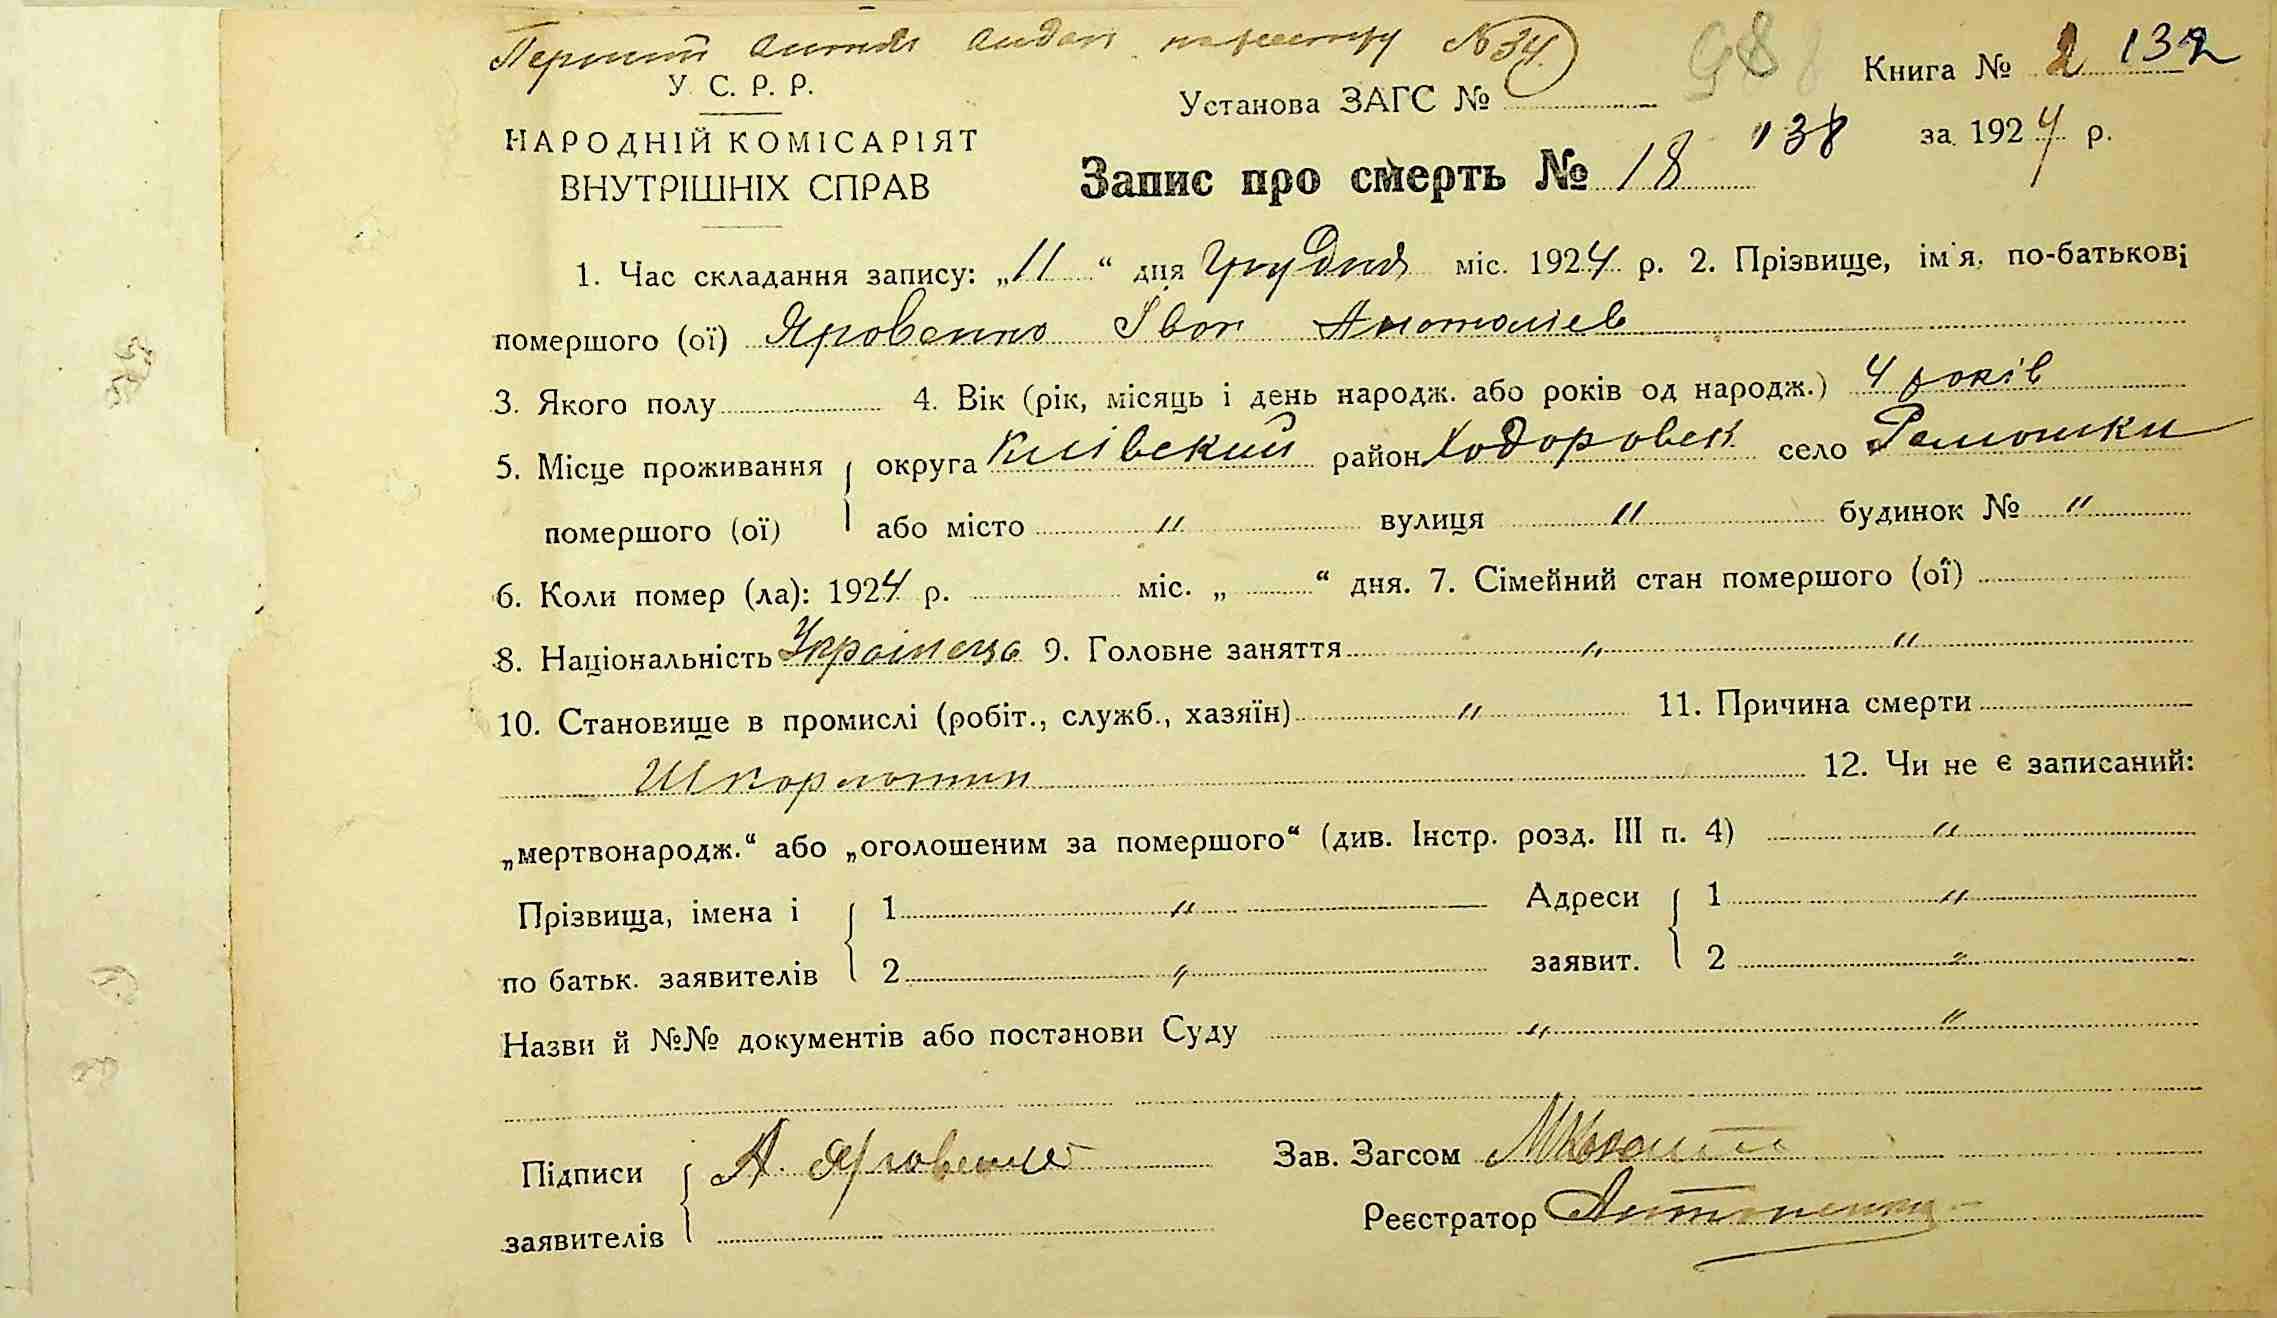 Перший витяг видан по реєстру № 34.
У. С. Р. Р.
НАРОДНІЙ КОМІСАРІЯТ
ВНУТРІШНІХ СПРАВ
988
Книга № 2 132
Установа ЗАГС №
за 1924 р.
Запис про смерть № 18 138
1. Час складання запису: „11“ дня Грудня міс. 1924 р. 2. Прізвище, ім'я, по-батькові
помершого (ої) Яровенко Іван Анатолієв
3. Якого полу 4. Вік (рік, місяць і день народж. або років од народж.) 4 років
5. Місце проживання округа Київский район Ходоровск село Ромашки
помершого (ої) або місто " вулиця " будинок № "
6. Коли помер (ла): 1924 р. міс. „ “ дня. 7. Сімейний стан помершого (ої)
8. Національність Українець 9. Головне заняття " "
10. Становище в промислі (робіт., служб., хазяїн) " 11. Причина смерти
Шкорлотин 12. Чи не є записаний:
„мертвонародж.“ або „оголошеним за помершого“ (див. Інстр. розд. III п. 4) "
Прізвища, імена і 1 " Адреси 1 "
по батьк. заявителів 2 " заявит. 2 "
Назви й №№ документів або постанови Суду " "
Підписи А. Яровенко Зав. Загсом
заявителів Реєстратор Антоненко